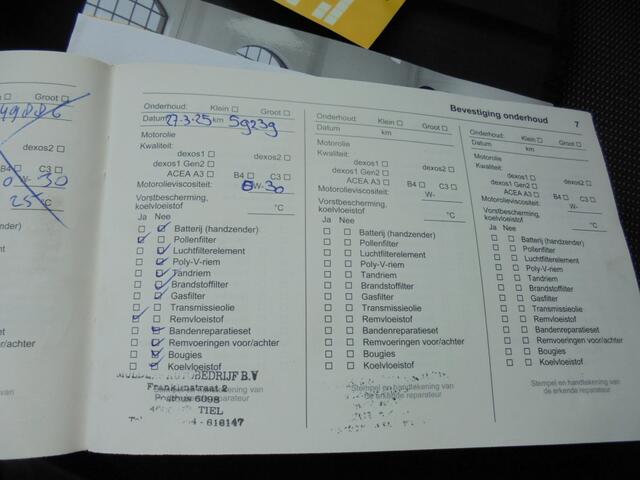 Bevestiging onderhoud 7
Groot
C3
W- 30
°C
Onderhoud: Klein Groot
Datum 27.3.25 km 59239
Motorolie
Kwaliteit:
dexos1 dexos2
dexos1 Gen2
ACEA A3 B4 C3
Motorolieviscositeit: W- 30
Vorstbescherming, koelvloeistof °C
Ja Nee
Batterij (handzender)
Pollenfilter
Luchtfilterelement
Poly-V-riem
Tandriem
Brandstoffilter
Gasfilter
Transmissieolie
Remvloeistof
Bandenreparatieset
Remvoeringen voor/achter
Bougies
Koelvloeistof
BEDRIJF B.V
TIEL
616147
Onderhoud: Klein Groot
Datum km
Motorolie
Kwaliteit:
dexos1 dexos2
dexos1 Gen2
ACEA A3 B4 C3
Motorolieviscositeit: W-
Vorstbescherming, koelvloeistof °C
Ja Nee
Batterij (handzender)
Pollenfilter
Luchtfilterelement
Poly-V-riem
Tandriem
Brandstoffilter
Gasfilter
Transmissieolie
Remvloeistof
Bandenreparatieset
Remvoeringen voor/achter
Bougies
Koelvloeistof
Stempel en handtekening van
de erkende reparateur
Onderhoud: Klein Groot
Datum km
Motorolie
Kwaliteit:
dexos1 dexos2
dexos1 Gen2
ACEA A3 B4 C3
Motorolieviscositeit: W-
Vorstbescherming, koelvloeistof °C
Ja Nee
Batterij (handzender)
Pollenfilter
Luchtfilterelement
Poly-V-riem
Tandriem
Brandstoffilter
Gasfilter
Transmissieolie
Remvloeistof
Bandenreparatieset
Remvoeringen voor/achter
Bougies
Koelvloeistof
Stempel en handtekening van
de erkende reparateur